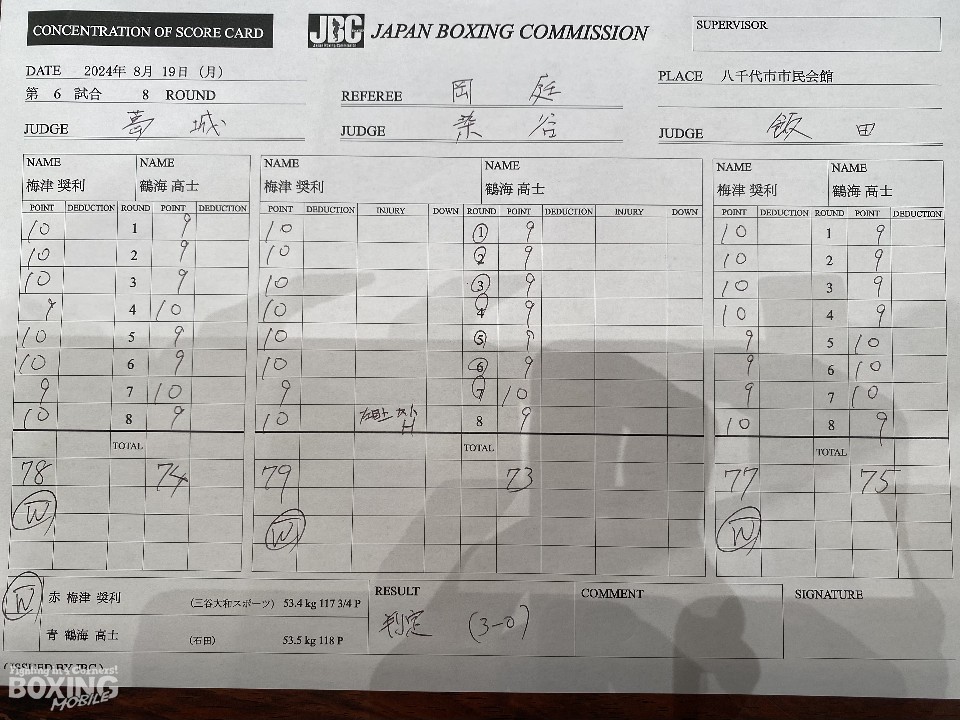 CONCENTRATION OF SCORE CARD
JBC JAPAN BOXING COMMISSION
Japan Boxing Commission
SUPERVISOR
DATE 2024年 8月 19日 (月)
第 6 試合 8 ROUND
REFEREE 岡庭
PLACE 八千代市市民会館
JUDGE 葛城
JUDGE 染谷
JUDGE 飯田
NAME NAME NAME NAME NAME NAME
梅津 奨利 鶴海 高士 梅津 奨利 鶴海 高士 梅津 奨利 鶴海 高士
POINT DEDUCTION ROUND POINT DEDUCTION POINT DEDUCTION INJURY DOWN ROUND POINT DEDUCTION INJURY DOWN POINT DEDUCTION ROUND POINT DEDUCTION
10 1 9 10 1 9 10 1 9
10 2 9 10 2 9 10 2 9
10 3 9 10 3 9 10 3 9
9 4 10 10 4 9 10 4 9
10 5 9 10 5 9 9 5 10
10 6 9 10 6 9 9 6 10
9 7 10 9 7 10 9 7 10
10 8 9 10 8 9 10 8 9
TOTAL TOTAL TOTAL
78 74 79 73 77 75
W W W
W 赤 梅津 奨利 (三谷大和スポーツ) 53.4 kg 117 3/4 P
青 鶴海 高士 (石田) 53.5 kg 118 P
RESULT
判定 (3-0)
COMMENT
SIGNATURE
(ISSUED BY JBC)
Fighting in 4 Corners!
BOXING
MOBILE